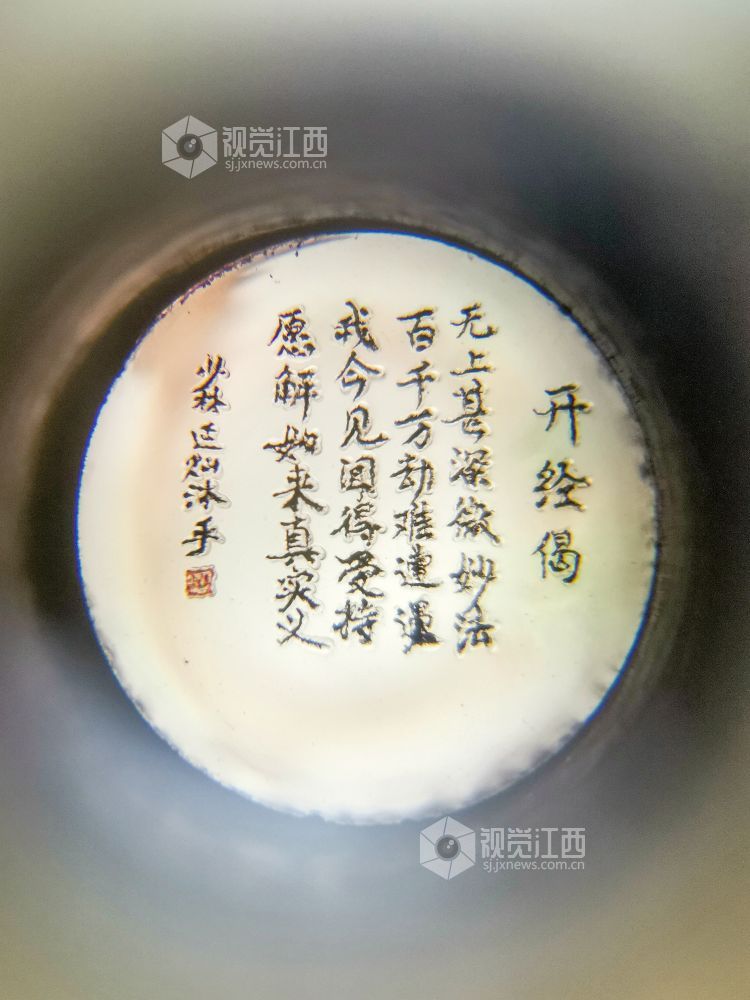 视觉江西
sj.jxnews.com.cn
开经偈
无上甚深微妙法
百千万劫难遭遇
我今见闻得受持
愿解如来真实义
少林延灿沐手
视觉江西
sj.jxnews.com.cn